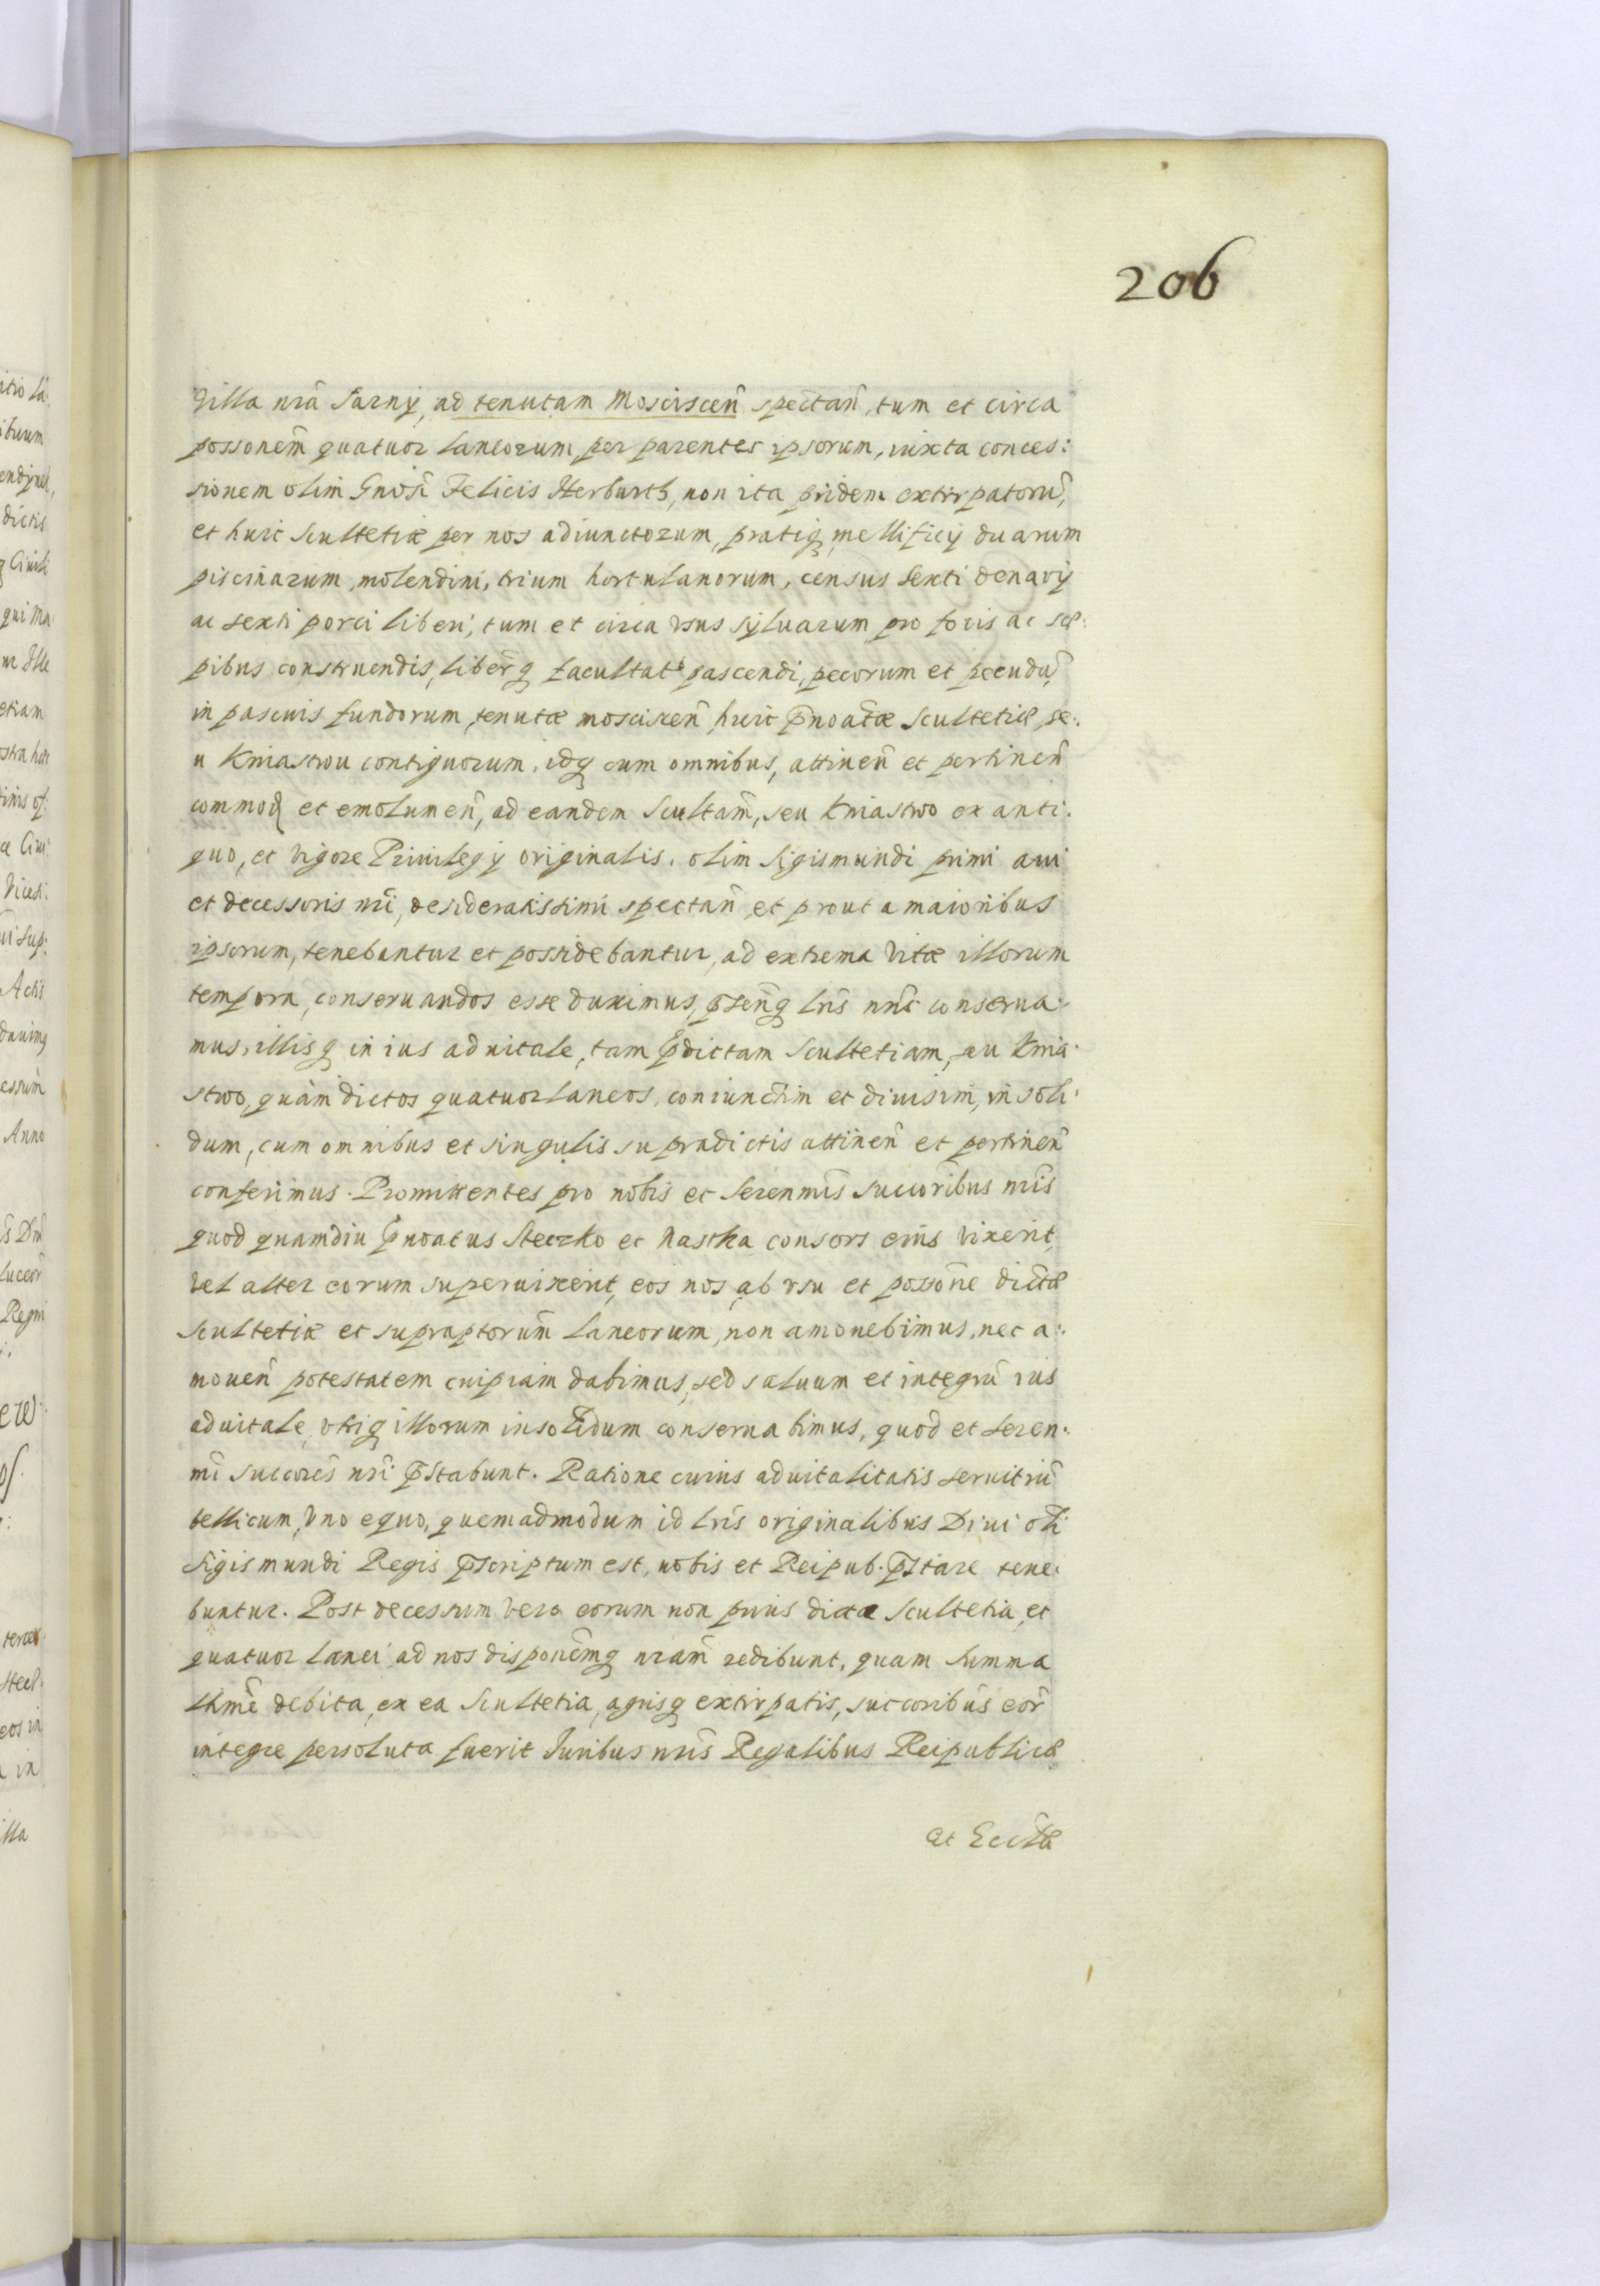 206
Villa nrã Sarny, ad tenutam Mosciscen̄ spectan̄, tum et circa
possonem̄ quatuor laneorum, per parentes ipsorum, iuxta conces:
sionem olim Gnosi Felicis Herburth, non ita pridem extirpatorū,
et huic Scultetiæ per nos adiunctorum, pratiq mellificÿ duarum
piscinarum, molendini, trium hortulanorum, census Sexti denarÿ
ac sexti porci liberi, tum et circa vsus syluarum pro focis ac sæ:
pibus construendis, liberq facultate pascendi, pecorum et pecudū,
in pascuis fundorum, tenutæ moscicen̄ huic p̄noatæ Scultetiæ se:
u Kniastwu contiguorum, idq cum omnibus, attinen̄ et pertinen̄
commod et emolumen̄, ad eandem Scultam̄, seu Kniastwo ex anti:
quo, et vigore Priuilegÿ originalis, olim Sigismundi primi aui
et decessoris nri, desideratissimi spectan̄, et prout a maioribus
ipsorum, tenebantur et possidebantur, ad extrema vitæ illorum
tempora, conseruandos esse duximus, p̄senq lris nris conserua:
mus, illisq in ius aduitale, tam p̄dictam Scultetiam, seu Knia:
stwo, quàm dictos quatuor laneos, coniunctim et diuisim, in soli:
dum, cum omnibus et singulis supradictis attinen̄ et pertinen̄
conferimus. Promittentes pro nobis et Serenmis succoribus nris
quod quamdiu p̄noatus Steczko et Nastka consors eius vixerit,
vel alter eorum superuixerit, eos nos, ab vsu et possone dictæ
Scultetiæ et supraptorum laneorum, non amouebimus, nec a:
mouen̄ potestatem cuipiam dabimus, sed saluum et integrū ius
aduitale, vtriq illorum insolidum conseruabimus, quod et Seren:
mi succores nri p̄stabunt. Ratione cuius aduitalitatis seruitiū
bellicum, vno equo, quemadmodum id lris originalibus Diui oli
Sigismundi Regis p̄scriptum est, nobis et Reipub. p̄stare tene:
buntur. Post decessum vero eorum non prius dicta Scultetia, et
quatuor lanei ad nos disponemq nram̄ redibunt, quam summa
lhme debita, ex ea Scultetia, agrisq extirpatis, succoribus eor̄
integre persoluta fuerit Iuribus nris Regalibus Reipublicæ
et Eccltæ